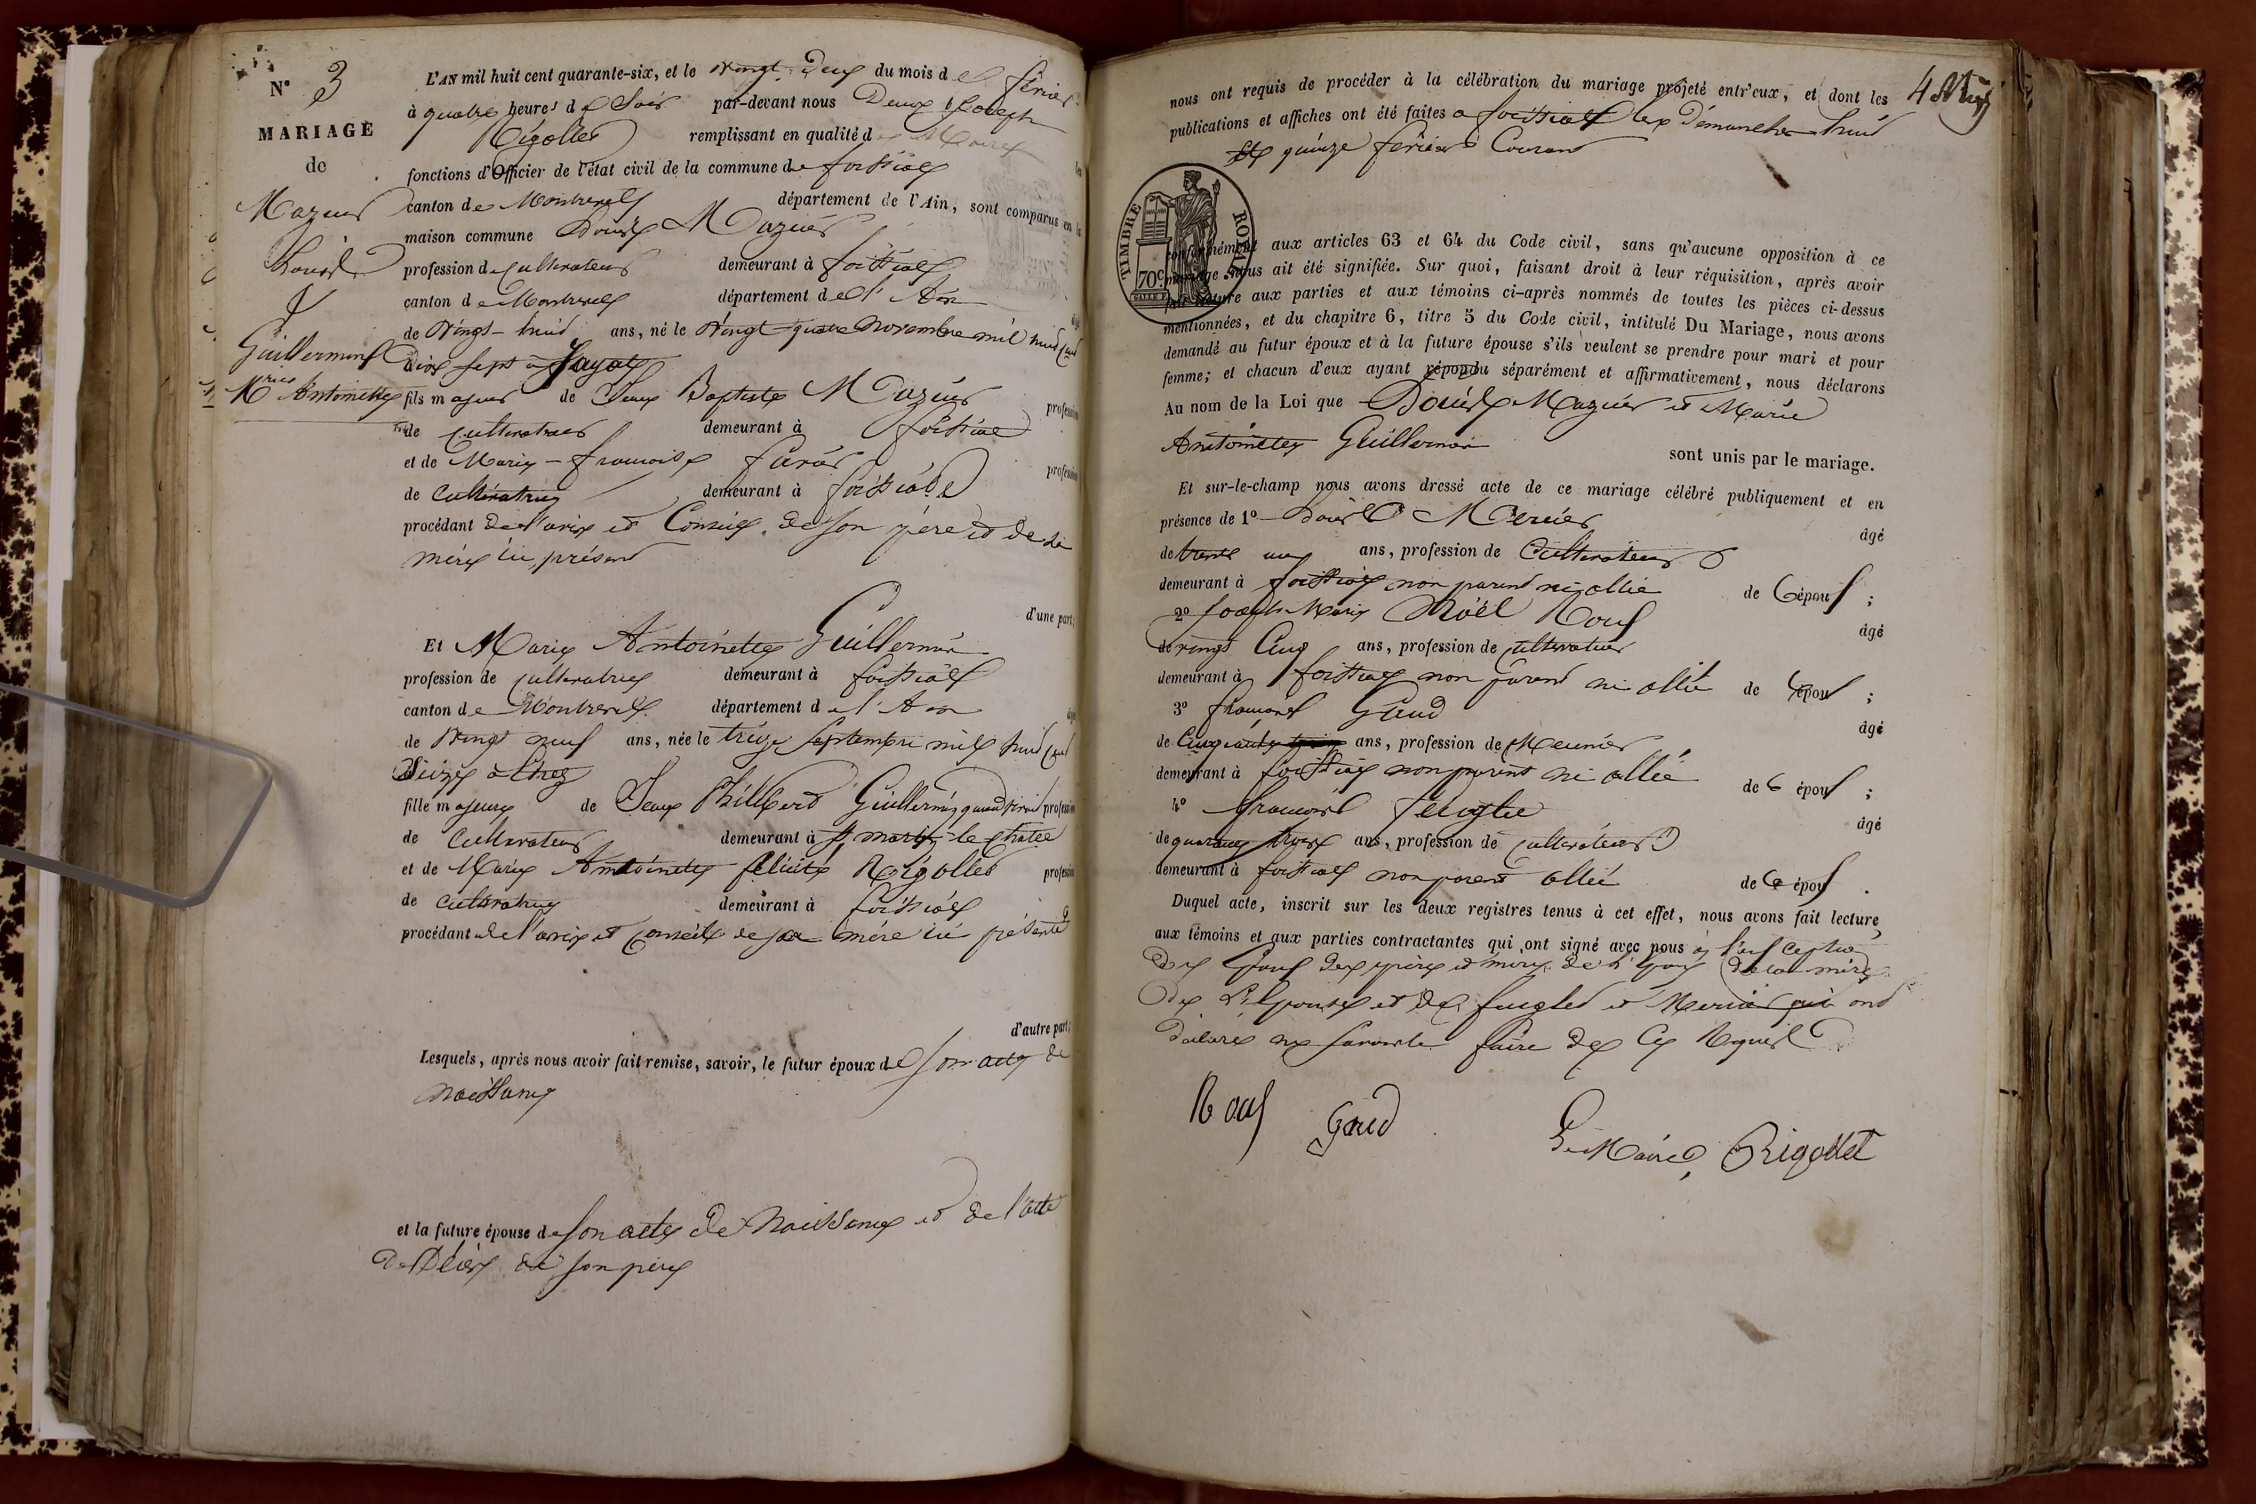 N° 3
MARIAGE
de
Mazuir
Louis
&
Guillermin
Mrie Antoinette
L'AN mil huit cent quarante-six, et le vingt-deux du mois de février
à quatre heures de Soir par-devant nous Joseph
Rigollet remplissant en qualité de Maire
fonctions d'Officier de l'état civil de la commune de foissiat
canton de Montrevel département de l'Ain, sont comparus en la
maison commune Louis Mazuir
profession de Cultivateur demeurant à foissiat
canton de Montrevel département de l'Ain
de Vingt-huit ans, né le Vingt-quatre Novembre mil huit Cent
dix sept à Jayat
fils majeur de Jean Baptiste Mazuir profession
de Cultivateur demeurant à foissiat
et de Marie-françoise profession
de Cultivatrice demeurant à foissiat
procédant de l'avis et Conseil de son père et de sa
mère ici présent
d'une part;
Et Marie Antoinette Guillermin
profession de Cultivatrice demeurant à foissiat
canton de Montrevel département de l'Ain
de Vingt neuf ans, née le treize Septembre mil huit Cent
Seize à
fille majeure de Jean Philibert Guillermin quand vivait profession
de Cultivateur demeurant à St martin-le-Chatel
et de Marie Antoinette félicité Rigollet profession
de Cultivatrice demeurant à foissiat
procédant de l'avis et Conseil de sa mère ici présente
d'autre part;
Lesquels, après nous avoir fait remise, savoir, le futur époux de son acte de
Naissance
et la future épouse de son acte de Naissance et de l'acte
de Décès de son père
4 
nous ont requis de procéder à la célébration du mariage projeté entr'eux, et dont les
publications et affiches ont été faites à foissiat les Dimanches huit
et quinze février Courant
TIMBRE ROYAL
70 c.
conformément aux articles 63 et 64 du Code civil, sans qu'aucune opposition à ce
mariage nous ait été signifiée. Sur quoi, faisant droit à leur réquisition, après avoir
fait lecture aux parties et aux témoins ci-après nommés de toutes les pièces ci-dessus
mentionnées, et du chapitre 6, titre 5 du Code civil, intitulé Du Mariage, nous avons
demandé au futur époux et à la future épouse s'ils veulent se prendre pour mari et pour
femme; et chacun d'eux ayant répondu séparément et affirmativement, nous déclarons
Au nom de la Loi que Louis Mazuir et Marie
Antoinette Guillermin
sont unis par le mariage.
Et sur-le-champ nous avons dressé acte de ce mariage célébré publiquement et en
présence de 1° Louis Mercier âgé
de trente ans, profession de Cultivateur
demeurant à foissiat non parent ni allié de l'époux ;
2° Joseph Marie Noël Roux âgé
de vingt Cinq ans, profession de Cultivateur
demeurant à foissiat non parent ni allié de l'époux ;
3° françois Gaud âgé
de Cinquante ans, profession de Meunier
demeurant à foissiat non parent ni allié de l'époux ;
4° françois âgé
de quarante trois ans, profession de Cultivateur
demeurant à foissiat non parent allié de l'époux .
Duquel acte, inscrit sur les deux registres tenus à cet effet, nous avons fait lecture
aux témoins et aux parties contractantes qui ont signé avec nous à l'exception
des époux des père et mère de l'époux de la mère
de l'Epouse et de et Mercier qui ont
déclaré ne savoir le faire de Ce Requis
Roux Gaud Le Maire, Rigollet